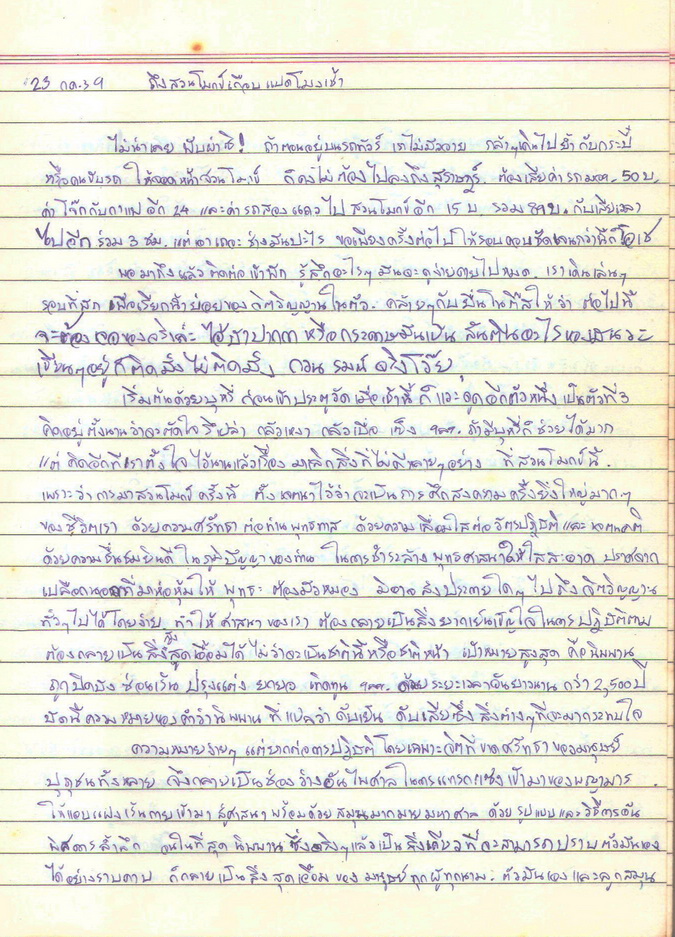 23 กค.39 ถึงสวนโมกข์เกือบแปดโมงเช้า
ไม่น่าเลย ผับผ่าซิ! ถ้าตอนอยู่บนรถทัวร์ เราไม่มัวอาย กล้าๆเดินไปย้ำกับกระปี๋
หรือคนขับรถ ให้จอดหน้าสวนโมกข์ ก็คงไม่ต้องไปลงถึงสุราษฎร์. ต้องเสียค่ารถ 50 บ.
ค่าโจ๊กกับกาแฟอีก 24 และค่ารถสองแถวไปสวนโมกข์อีก 15 บ. รวม 89 บ. กับเสียเวลา
ไปอีกร่วม 3 ชม. แต่เอาเถอะ ช่างมันปะไร ขอเพียงครั้งต่อไปให้รอบคอบชัดเจนกว่านี้ก็โอเช
พอมาถึงแล้วติดต่อเข้าพัก รู้สึกอะไรๆมันจะดูง่ายดายไปหมด. เราเดินเล่นๆ
รอบที่พัก เพื่อเรียกน้ำย่อยของจิตวิญญาณในตัว. คล้ายๆกับยื่นโนติสให้ว่า ต่อไปนี้
จะต้องเจอของจริงล่ะ ไอ้ปากกาหรือกระดาษมันเป็นสันตินอะไรของมันวะ
เขียนๆอยู่ก็ติดมั่งไม่ติดมั่ง กวนรมณ์จริงโว้ย
เริ่มต้นด้วยบุหรี่ ก่อนเข้าประตูวัดเมื่อเช้านี้ ก็แวะดูดอีกตัวหนึ่ง เป็นตัวที่ 3
คิดอยู่ตั้งนานว่าจะตัดใจรึเปล่า กลัวเหงา กลัวเบื่อ เซ็ง ฯลฯ. ถ้ามีบุหรี่ก็ช่วยได้มาก
แต่ คิดอีกทีเราตั้งใจไว้นานแล้วเรื่อง มาเลิกสิ่งที่ไม่ดีหลายๆอย่าง ที่สวนโมกข์นี้.
เพราะว่า การมาสวนโมกข์ครั้งนี้ ตั้งเจตนาไว้ว่าจะเป็นการศึกสงครามครั้งยิ่งใหญ่มากๆ
ของชีวิตเรา ด้วยความศรัทธาต่อท่านพุทธทาส ด้วยความเลื่อมใสต่อวัตรปฏิบัติและเจตคติ
ด้วยความชื่นชมยินดีในภูมิปัญญาของท่าน ในการชำระล้างพุทธศาสนาให้ใสสะอาด ปราศจาก
เปลือกนอกที่มาห่อหุ้มให้ พุทธะ ต้องมัวหมอง มิอาจส่งประกายใดๆ ไปถึงจิตวิญญาณ
ทั่วๆไปได้โดยง่าย ทำให้ศาสนาของเรา ต้องกลายเป็นสิ่งยากเย็นเข็ญใจในการปฏิบัติตาม
ต้องกลายเป็นสิ่งสุดเอื้อมได้ ไม่ว่าจะเป็นชาตินี้หรือชาติหน้า เป้าหมายสูงสุด คือนิพพาน
ถูกปิดบัง ซ่อนเร้น ปรุงแต่ง ยกยอ เทิดทูน ฯลฯ ด้วยระยะเวลาอันยาวนาน กว่า 2,500 ปี
ปิดนี้ความหมายของคำว่านิพพาน ที่แปลว่า ดับเย็น ดับเสียซึ่งสิ่งต่างๆที่จะมากระทบใจ
ความหมายง่ายๆ แต่ยากต่อการปฏิบัติ โดยเฉพาะจิตที่ขาดศรัทธาของมนุษย์
ปุถุชนทั้งหลาย จึงกลายเป็นช่องว่างอันไพศาลในการแทรกแซงเข้ามาของพญามาร.
ให้แอบแฝงเร้นกายเข้ามาสู่ศาสนา พร้อมด้วยสมุนมากมายมหาศาล ด้วยรูปแบบและวิธีการอัน
พิสดารล้ำลึก จนในที่สุด นิพพาน ซึ่งจริงๆแล้วเป็นสิ่งเดียวที่จะสามารถปราบตัวมันเอง
ได้อย่างราบคาบ ก็กลายเป็นสิ่งสุดเอื้อม ของมนุษย์ทุกผู้ทุกนาม. ตัวมันเองและลูกสมุน